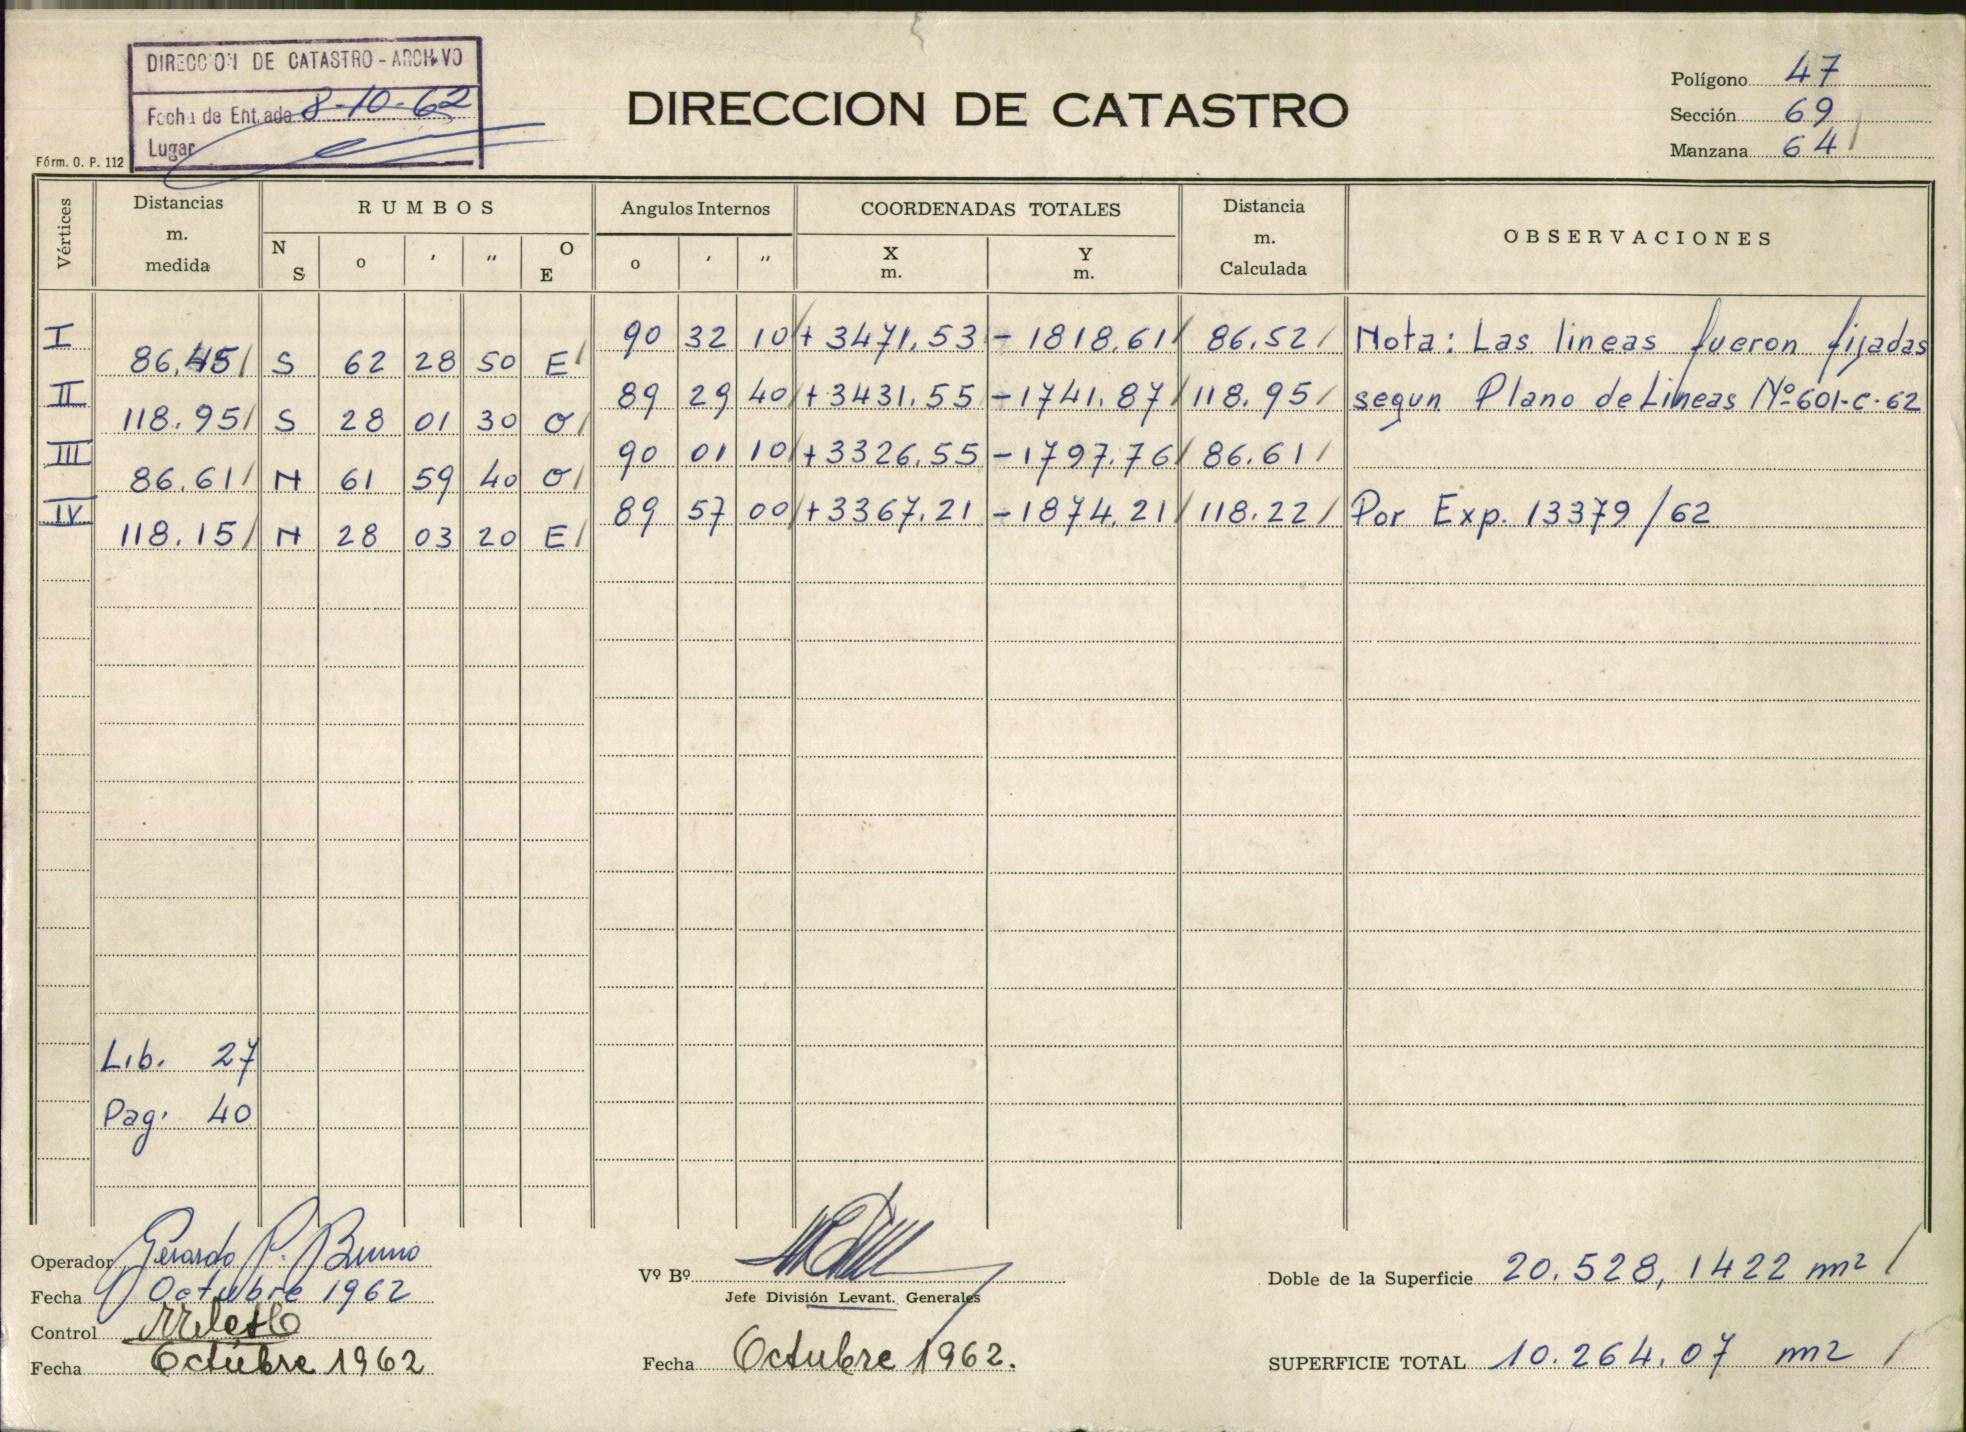 DIRECCION DE CATASTRO - ARCHIVO
Fecha de Entrada 8-10-62
Lugar
Fórm. O. P. 112
DIRECCION DE CATASTRO
Polígono 47
Sección 69
Manzana 64
Vértices
Distancias
m.
medida
RUMBOS
N S
o
'
"
O E
Angulos Internos
o
'
"
COORDENADAS TOTALES
X
m.
Y
m.
Distancia
m.
Calculada
OBSERVACIONES
I 90 32 10 + 3471.53 - 1818.61 86.52 Nota: Las lineas fueron fijadas
86.45 S 62 28 50 E
II 89 29 40 + 3431.55 - 1741.87 118.95 segun Plano de Lineas Nº 601-C-62
118.95 S 28 01 30 O
III 90 01 10 + 3326.55 - 1797.76 86.61
86.61 N 61 59 40 O
IV 89 57 00 + 3367.21 - 1874.21 118.22 Por Exp. 13379/62
118.15 N 28 03 20 E
Lib. 27
Pag. 40
Operador Gerardo P. Bruno
Fecha Octubre 1962
Control
Fecha Octubre 1962
Vº Bº
Jefe División Levant. Generales
Fecha Octubre 1962.
Doble de la Superficie 20.528,1422 m2
SUPERFICIE TOTAL 10.264.07 m2